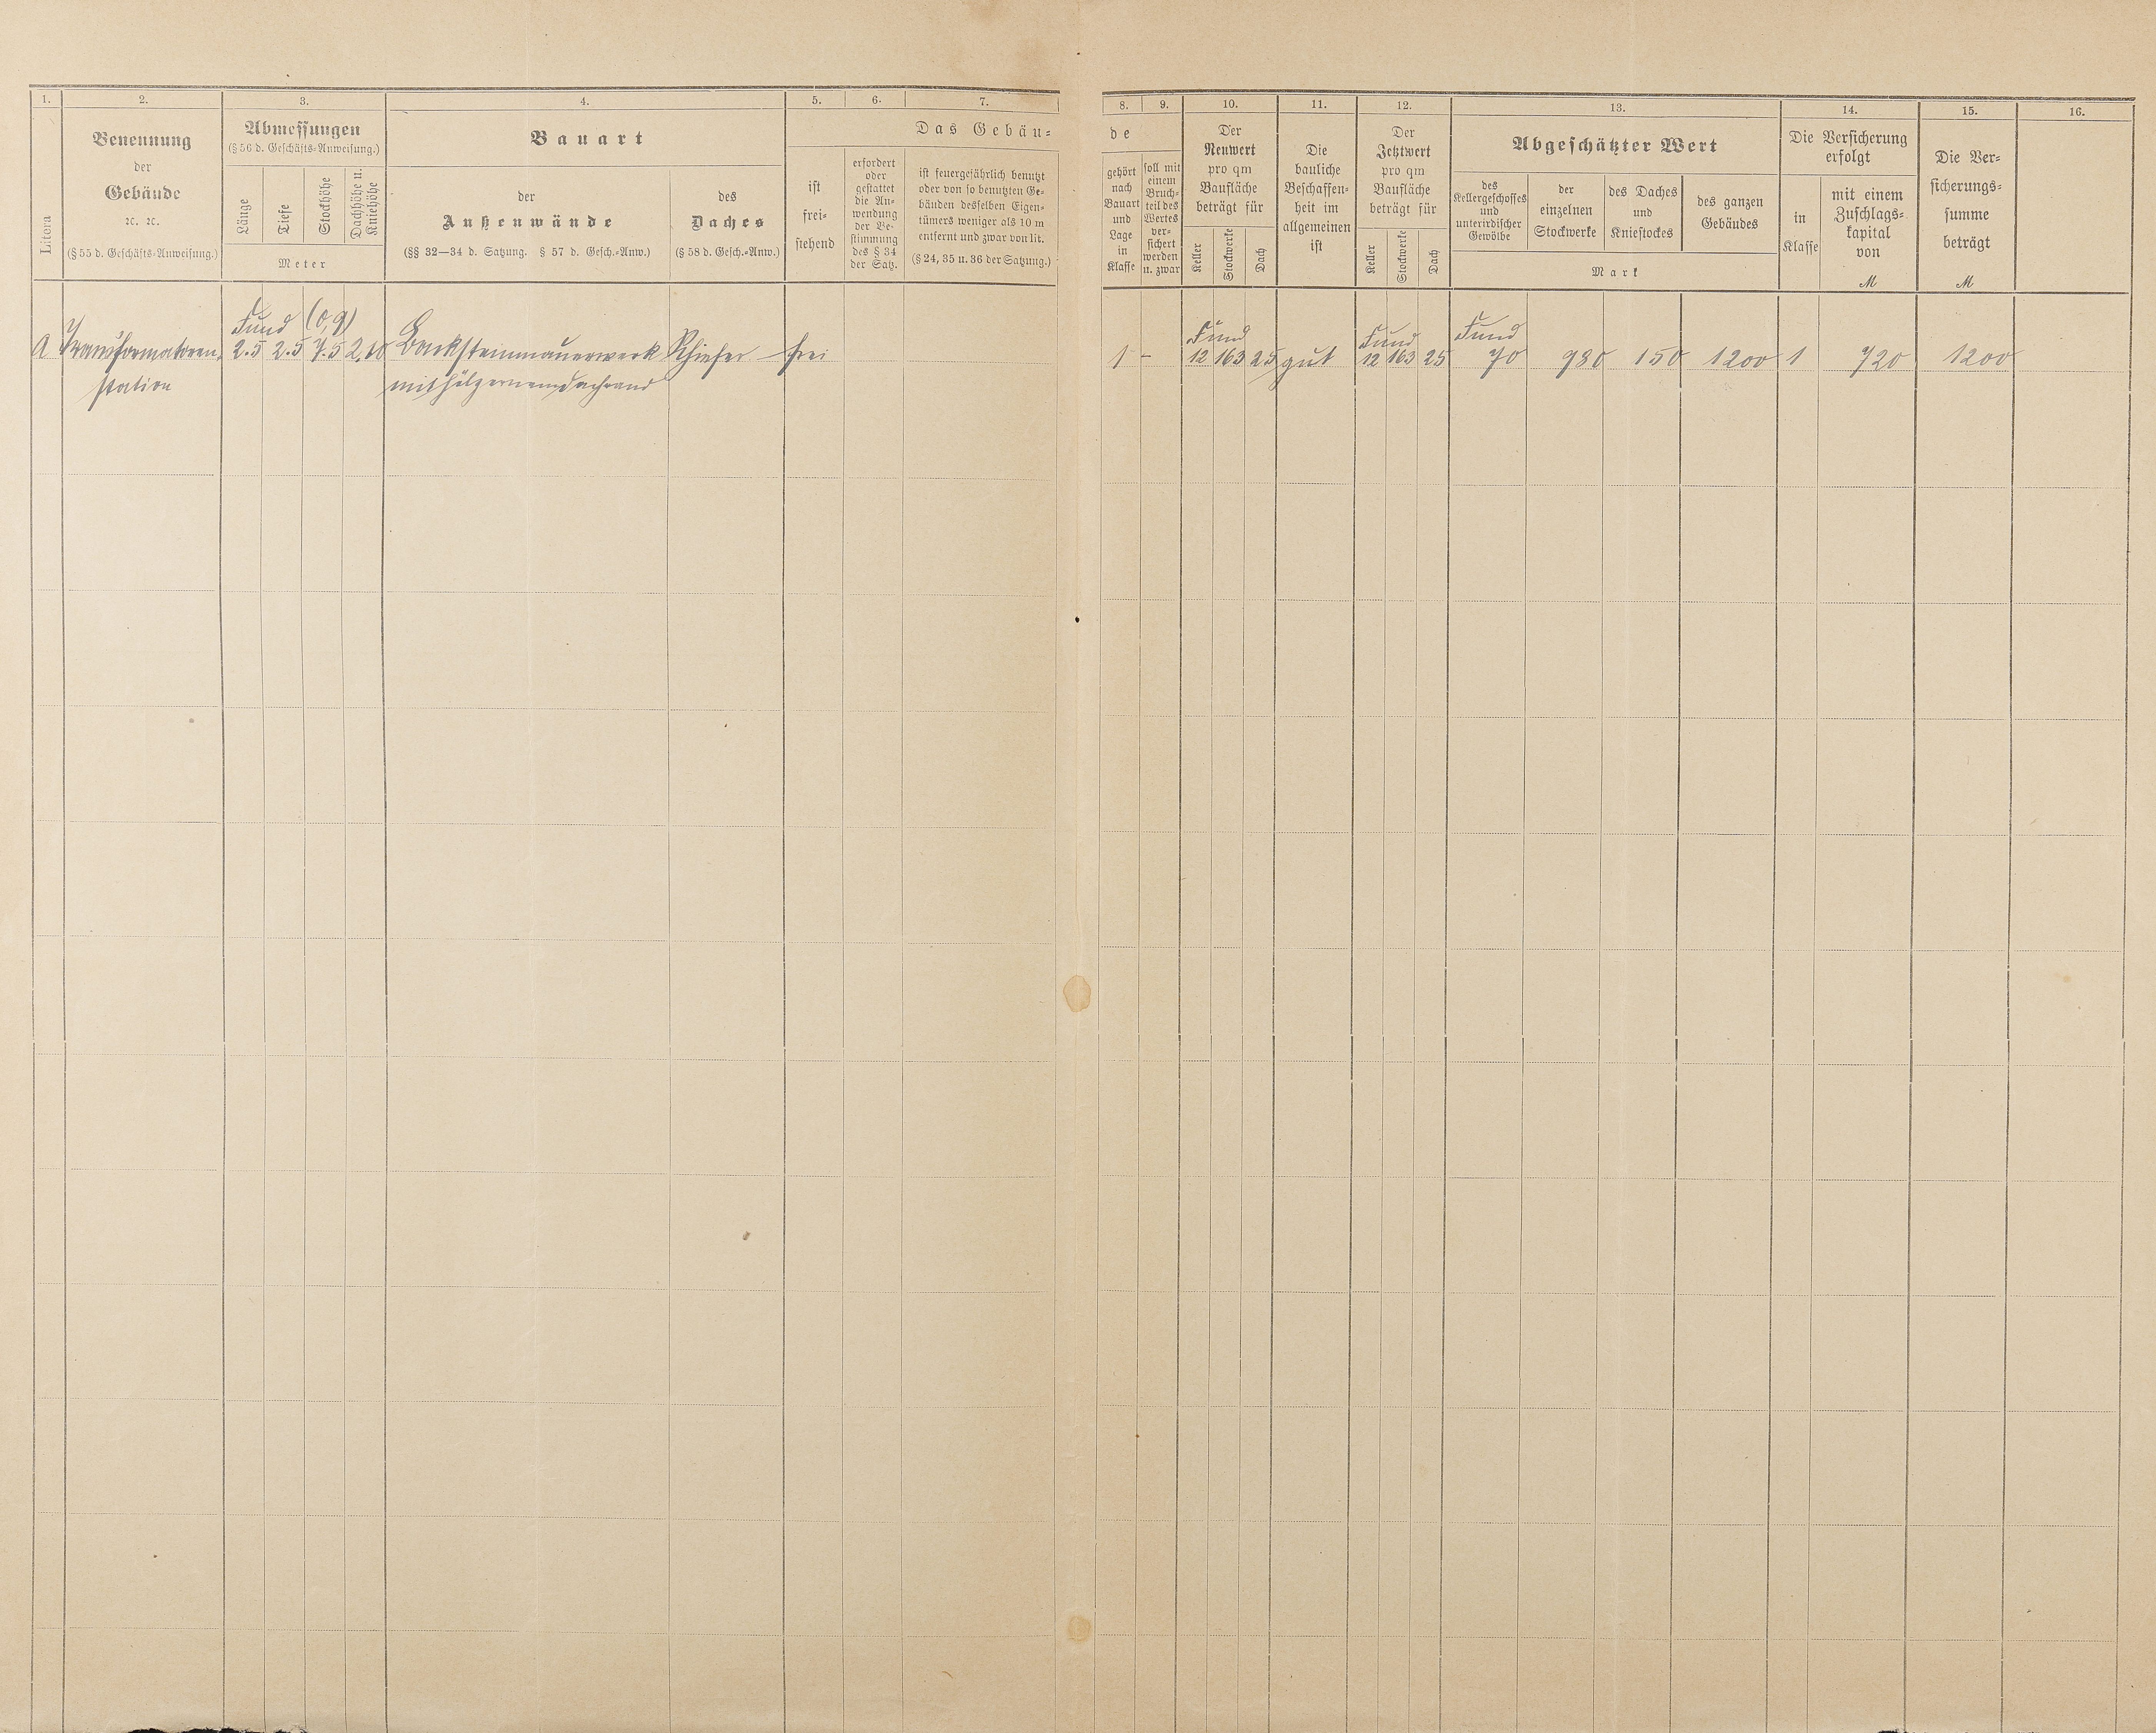 1. 2. 3. 4. 5. 6. 7. 8. 9. 10. 11. 12. 13. 14. 15. 16.
Litera
Benennung
der
Gebäude
ꝛc. ꝛc.
(§ 55 d. Geschäfts-Anweisung.)
Abmessungen
(§ 56 d. Geschäfts-Anweisung.)
Länge
Tiefe
Stockhöhe
Dachhöhe u.
Kniehöhe
Meter
Bauart
der
Außenwände
(§§ 32—34 d. Satzung. § 57 d. Gesch.-Anw.)
des
Daches
(§ 58 d. Gesch.-Anw.)
Das Gebäu-
ist
frei-
stehend
erfordert
oder
gestattet
die An-
wendung
der Be-
stimmung
des § 34
der Satz.
ist feuergefährlich benutzt
oder von so benutzten Ge-
bäuden desselben Eigen-
tümers weniger als 10 m
entfernt und zwar von lit.
(§ 24, 35 u. 36 der Satzung.)
de
gehört
nach
Bauart
und
Lage
in
Klasse
soll mit
einem
Bruch-
teil des
Wertes
ver-
sichert
werden
u. zwar
Der
Neuwert
pro qm
Baufläche
beträgt für
Keller
Stockwerke
Dach
Die
bauliche
Beschaffen-
heit im
allgemeinen
ist
Der
Jetztwert
pro qm
Baufläche
beträgt für
Keller
Stockwerke
Dach
Abgeschätzter Wert
des
Kellergeschosses
und
unterirdischer
Gewölbe
der
einzelnen
Stockwerke
des Daches
und
Kniestockes
des ganzen
Gebäudes
Mark
Die Versicherung
erfolgt
in
Klasse
mit einem
Zuschlags-
kapital
von
M
Die Ver-
sicherungs-
summe
beträgt
M
Fund (0,9) Fund Fund Fund
A Transformatoren- 2.5 2.5 7.5 2.10 Backsteinmauerwerk Schiefer frei 1 – 12 163 25 gut 12 163 25 70 980 150 1200 1 720 1200
station mit hölzernem Dachrand